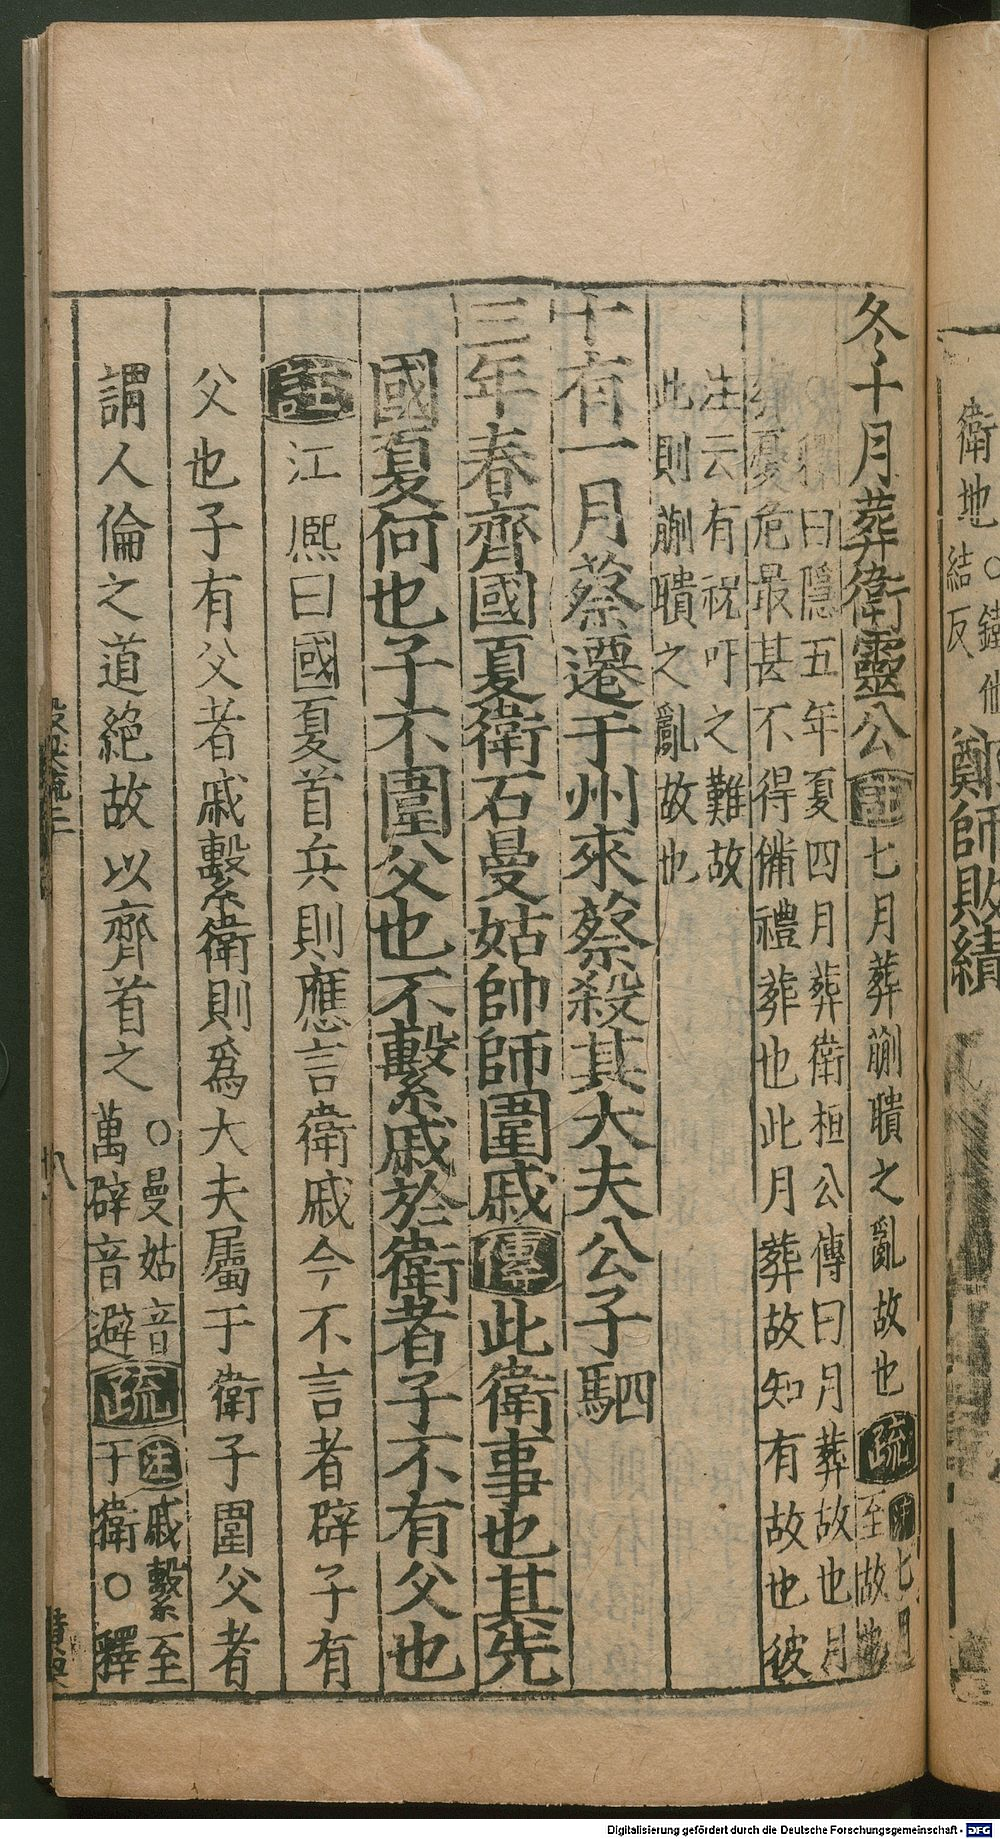 衛地
○鐵他
結反
鄭師敗績
冬十月葬衛靈公註七月葬蒯聵之亂故也疏
註七月
至故也
○釋曰隱五年夏四月葬衛桓公傳曰月葬故也月
葬憂危最甚不得備禮葬也此月葬故知有故也彼
注云有祝吁之難故
此則蒯聵之亂故也
十有一月蔡遷于州來蔡殺其大夫公子駟
三年春齊國夏衛石曼姑帥師圍戚傳此衛事也其先
國夏何也子不圍父也不繫戚於衛者子不有父也
註江熈曰國夏首兵則應言衛戚今不言者辟子有
父也子有父者戚繫衛則爲大夫屬于衛子圍父者
謂人倫之道絕故以齊首之
○曼姑音
萬辟音避
疏
注戚繫至
于衛○釋
八
Digitalisierung gefördert durch die Deutsche Forschungsgemeinschaft - DFG